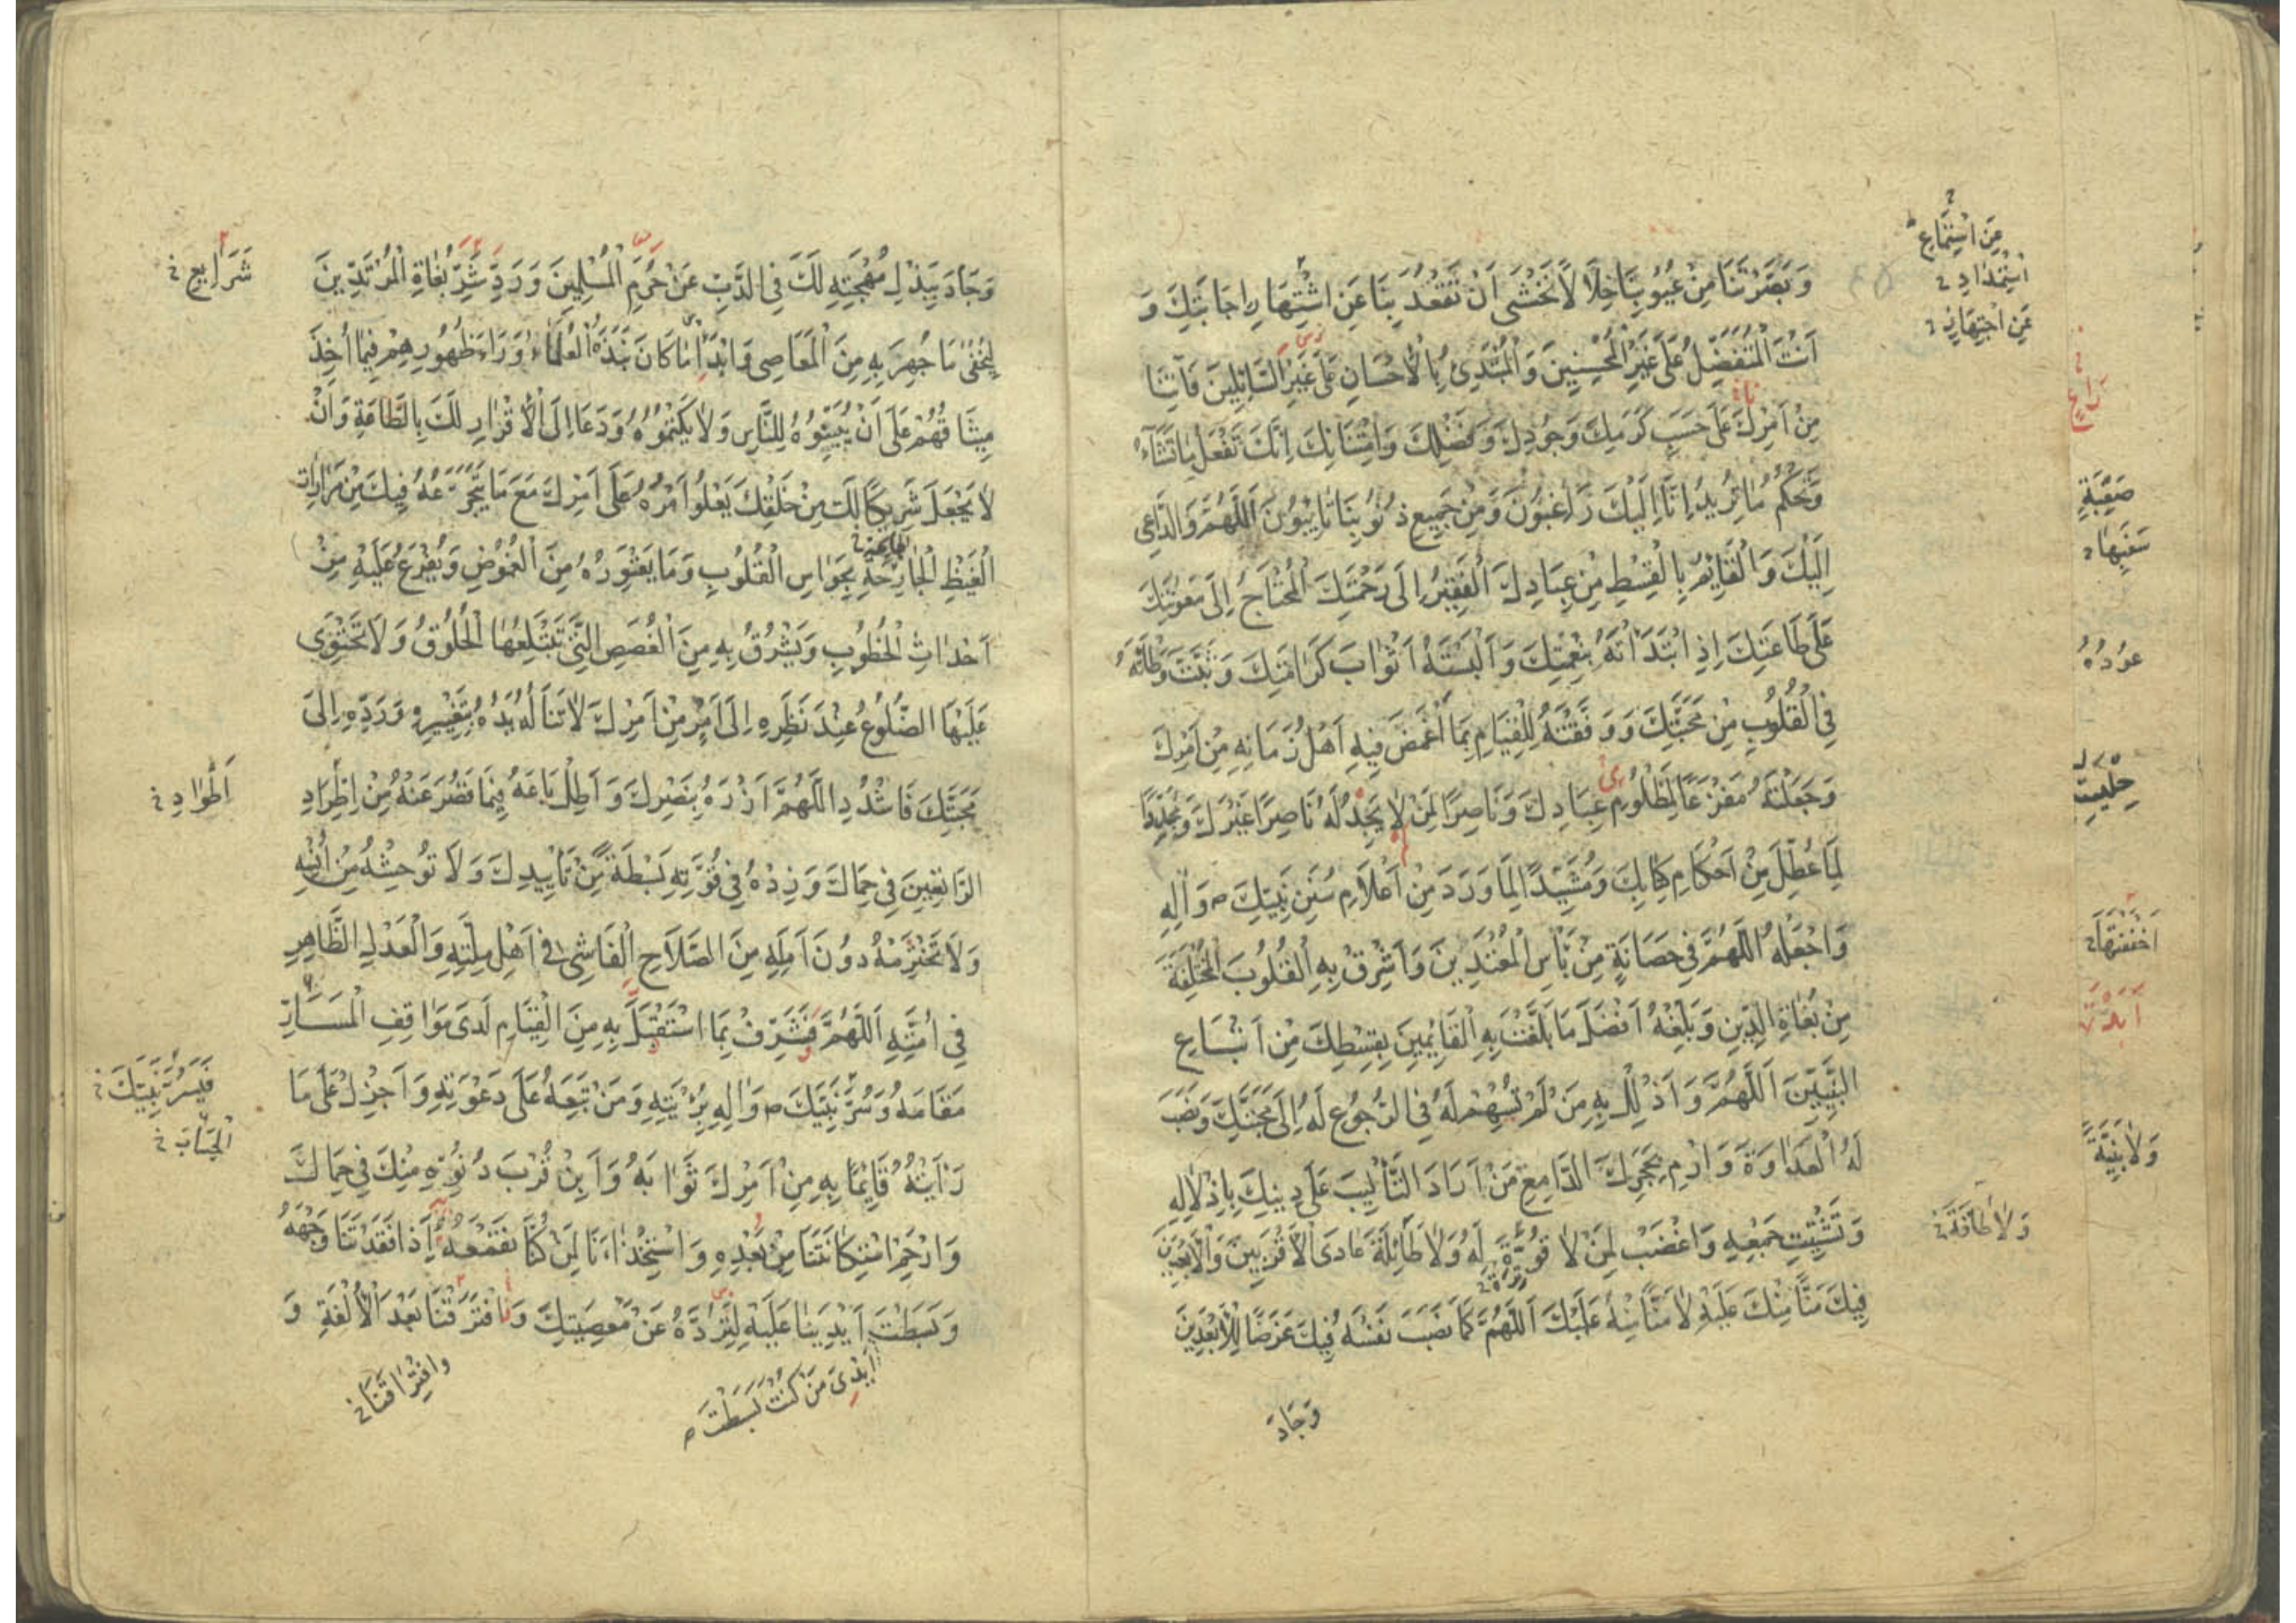 وَبَصَّرْتَنَا مِنْ عُيُوبِنَا خِلَالًا نَخْشَى اَنْ تَقْعُدَ بِنَا عَنِ اشْتِهَارِ اِجَابَتِكَ وَ
اَنْتَ الْمُتَفَضِّلُ عَلَى غَيْرِ الْمُحْسِنِينَ وَالْمُبْتَدِئُ بِالْاِحْسَانِ عَلَى غَيْرِ السَّائِلِينَ فَاٰتِنَا
مِنْ اَمْرِكَ عَلَى حَسَبِ كَرَمِكَ وَجُودِكَ وَفَضْلِكَ وَامْتِنَانِكَ اِنَّكَ تَفْعَلُ مَا تَشَآءُ
وَتَحْكُمُ مَا تُرِيدُ اِنَّا اِلَيْكَ رَاغِبُونَ وَمِنْ جَمِيعِ ذُنُوبِنَا تَائِبُونَ اَللّٰهُمَّ وَالدَّاعِي
اِلَيْكَ وَالْقَائِمُ بِالْقِسْطِ مِنْ عِبَادِكَ الْفَقِيرُ اِلَى رَحْمَتِكَ الْمُحْتَاجُ اِلَى مَعُونَتِكَ
عَلَى طَاعَتِكَ اِذِ ابْتَدَأْتَهُ بِنِعْمَتِكَ وَاَلْبَسْتَهُ اَثْوَابَ كَرَامَتِكَ وَثَبَّتَّ وَطْأَتَهُ
فِي الْقُلُوبِ مِنْ مَحَبَّتِكَ وَوَفَّقْتَهُ لِلْقِيَامِ بِمَا اَغْمَضَ فِيهِ اَهْلُ زَمَانِهِ مِنْ اَمْرِكَ
وَجَعَلْتَهُ مَفْزَعًا لِمَظْلُومِ عِبَادِكَ وَنَاصِرًا لِمَنْ لَا يَجِدُ لَهُ نَاصِرًا غَيْرَكَ وَمُجَدِّدًا
لِمَا عُطِّلَ مِنْ اَحْكَامِ كِتَابِكَ وَمُشَيِّدًا لِمَا وَرَدَ مِنْ اَعْلَامِ سُنَنِ نَبِيِّكَ ص وَاٰلِهِ
وَاجْعَلْهُ اللّٰهُمَّ فِي حَصَانَةٍ مِنْ بَأْسِ الْمُعْتَدِينَ وَاَشْرِقْ بِهِ الْقُلُوبَ الْمُخْتَلِفَةَ
مِنْ بُغَاةِ الدِّينِ وَبَلِّغْهُ اَفْضَلَ مَا بَلَّغْتَ بِهِ الْقَائِمِينَ بِقِسْطِكَ مِنْ اَتْبَاعِ
النَّبِيِّينَ اَللّٰهُمَّ وَاَذْلِلْ بِهِ مَنْ لَمْ تُسْهِمْ لَهُ فِي الرُّجُوعِ لَهُ اِلَى مَحَبَّتِكَ وَنَصَبَ
لَهُ الْعَدَاوَةَ وَارْمِ بِحَجَرِكَ الدَّامِغِ مَنْ اَرَادَ التَّأْلِيبَ عَلَى دِينِكَ بِاِذْلَالِهِ
وَتَشْتِيتِ جَمْعِهِ وَاغْضَبْ لِمَنْ لَا قُوَّةَ لَهُ وَلَا طَائِلَةَ عَادَى الْاَقْرَبِينَ وَالْاَبْعَدِينَ
فِيكَ مَنًّا مِنْكَ عَلَيْهِ لَا مَنًّا مِنْهُ عَلَيْكَ اَللّٰهُمَّ كَمَا نَصَبَ نَفْسَهُ فِيكَ غَرَضًا لِلْاَبْعَدِينَ
وَجَادَ
مِنَ اسْتِمَاعِ
اسْتِمْدَادِ
وَلَا طَاقَةَ
عُودُهُ
وَجَادَ بِبَذْلِ مُهْجَتِهِ لَكَ فِي الذَّبِّ عَنْ حُرَمِ الْمُسْلِمِينَ وَرَدَّ شَرَّ بُغَاةِ الْمُرْتَدِّينَ
لِيُخْفَى مَا جُهِرَ بِهِ مِنَ الْمَعَاصِي وَاَبْدَا مَا كَانَ نَبَذَهُ الْعُلَمَاءُ وَرَاءَ ظُهُورِهِمْ فِيمَا اُخِذَ
مِيثَاقُهُمْ عَلَى اَنْ يُبَيِّنُوهُ لِلنَّاسِ وَلَا يَكْتُمُوهُ وَدَعَا اِلَى الْاِقْرَارِ لَكَ بِالطَّاعَةِ وَاَنْ
لَا يَجْعَلَ شَرِيكًا لَكَ مِنْ خَلْقِكَ يَعْلُو اَمْرُهُ عَلَى اَمْرِكَ مَعَ مَا يَتَجَرَّعُهُ فِيكَ مِنْ مَرَارَاتِ
الْغَيْظِ الْجَارِحَةِ بِحَوَاسِ الْقُلُوبِ وَمَا يَعْتَوِرُهُ مِنَ الْغُمُوضِ وَيَفْرُغُ عَلَيْهِ مِنْ
اَحْدَاثِ الْخُطُوبِ وَيَشْرَقُ بِهِ مِنَ الْغُصَصِ الَّتِي تَبْتَلِعُهَا الْحُلُوقُ وَلَا تَحْتَوِي
عَلَيْهَا الضُّلُوعُ عِنْدَ نَظَرِهِ اِلَى اَمْرٍ مِنْ اَمْرِكَ لَا تَنَالُهُ يَدُهُ بِتَغْيِيرِهِ وَرَدِّهِ اِلَى
مَحَبَّتِكَ فَاشْدُدِ اللّٰهُمَّ اَزْرَهُ بِنَصْرِكَ وَاَطِلْ بَاعَهُ فِيمَا قَصُرَ عَنْهُ مِنْ اِطْرَادِ
الرَّاتِعِينَ فِي حِمَاكَ وَزِدْهُ فِي قُوَّتِهِ بَسْطَةً مِنْ تَأْيِيدِكَ وَلَا تُوحِشْهُ مِنْ اُنْسِهِ
وَلَا تَخْتَرِمْهُ دُونَ اَمَلِهِ مِنَ الصَّلَاحِ الْفَاشِي فِي اَهْلِ مِلَّتِهِ وَالْعَدْلِ الظَّاهِرِ
فِي اُمَّتِهِ اَللّٰهُمَّ فَشَرِّفْ بِمَا اسْتَقْبَلَ بِهِ مِنَ الْقِيَامِ لَدَى مَوَاقِفِ الْمَسَارِّ
مَقَامَهُ وَسُرَّ نَبِيَّكَ ص وَاٰلِهِ بِرُؤْيَتِهِ وَمَنْ تَبِعَهُ عَلَى دَعْوَتِهِ وَاَجْزِلْ عَلَى مَا
رَأَيْتَهُ قَائِمًا بِهِ مِنْ اَمْرِكَ ثَوَابَهُ وَاَبِنْ قُرْبَ دُنُوِّهِ مِنْكَ فِي حِمَاكَ
وَارْحَمِ اسْتِكَانَتَنَا مِنْ بَعْدِهِ وَاسْتِخْذَاءَنَا لِمَنْ كُنَّا نَقْمَعُهُ اِذَا فَقَدْتَنَا وَجْهَهُ
وَبَسَطْتَ اَيْدِيَنَا عَلَيْهِ لِنَرُدَّهُ عَنْ مَعْصِيَتِكَ وَافْتَرَقْنَا بَعْدَ الْاُلْفَةِ وَ
اَيْدِيَ مَنْ كُنْتَ بَسَطْتَ
وَافْتِرَاقَنَا
شَرَايِعِ
وَسُرَّ نَبِيَّكَ
الْحِسَابِ